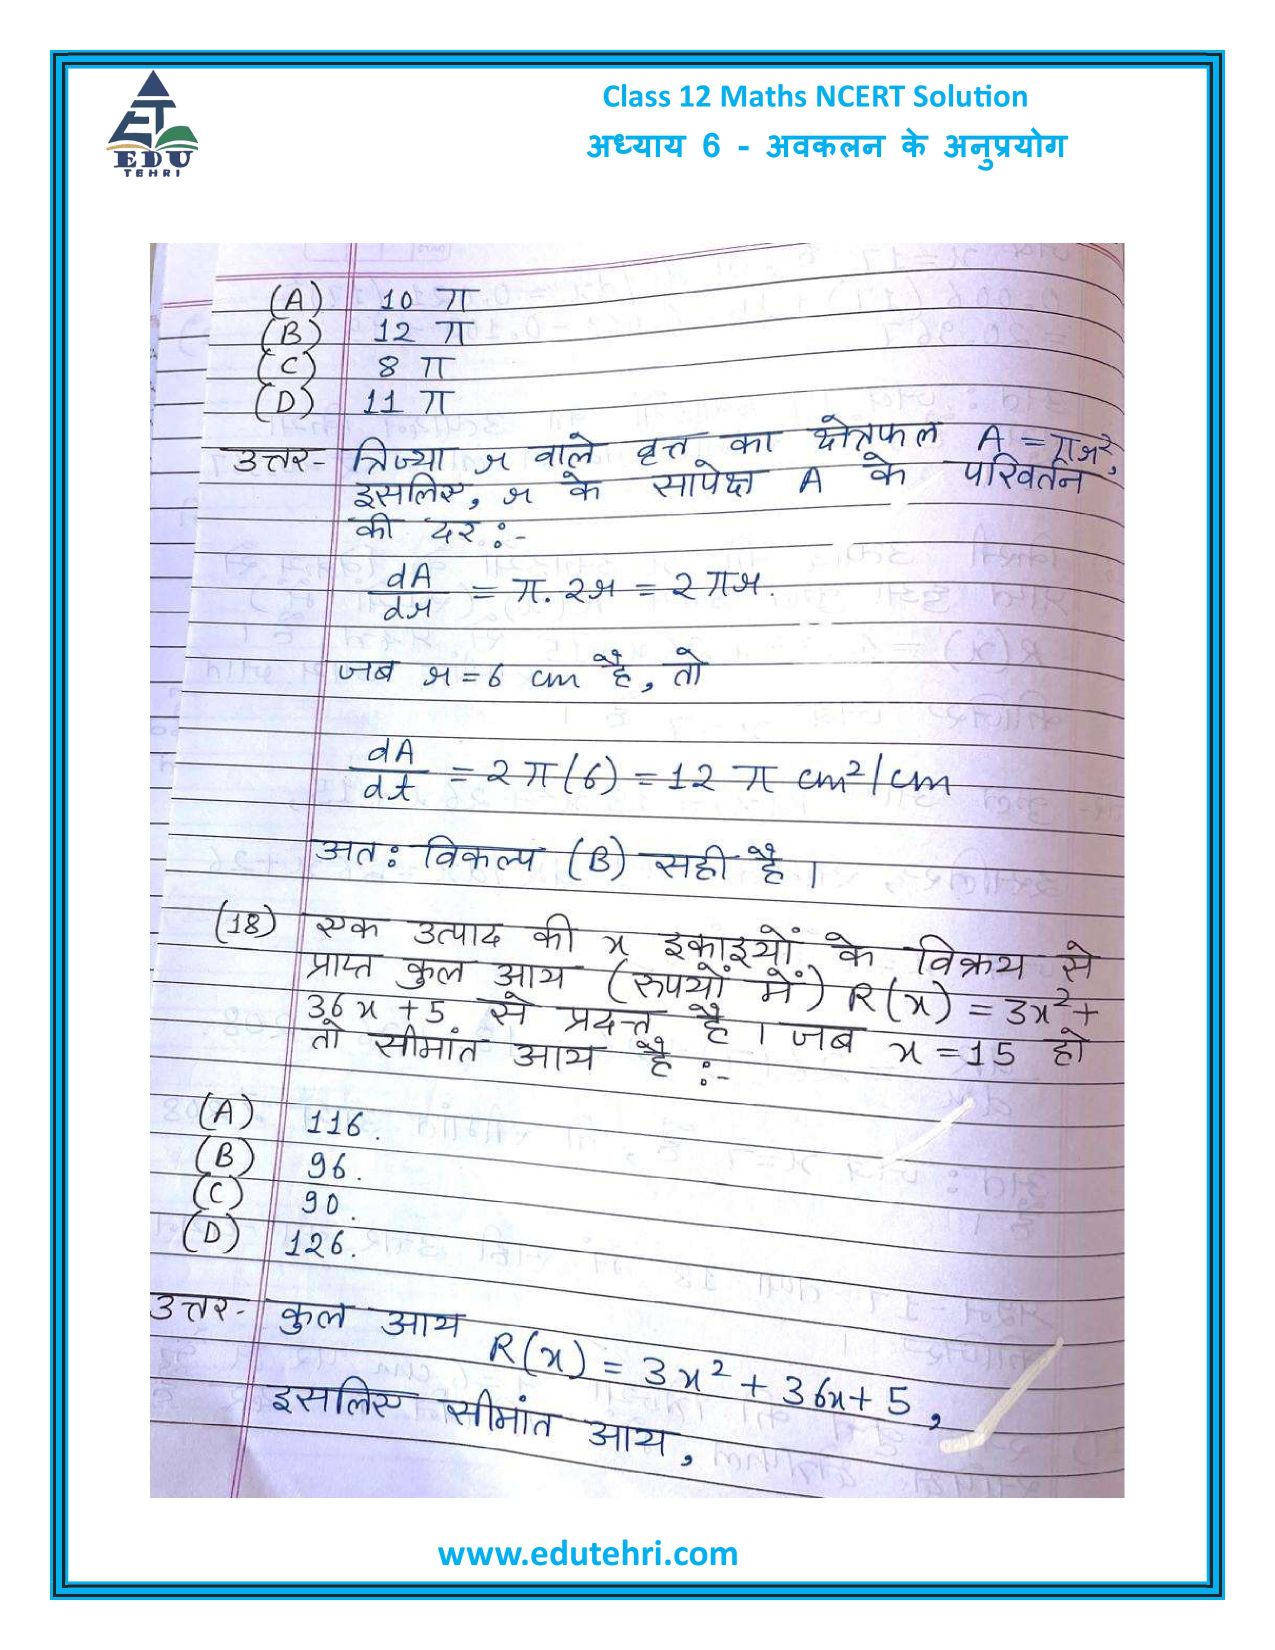 ET
EDU
TEHRI
Class 12 Maths NCERT Solution
अध्याय 6 - अवकलन के अनुप्रयोग
(A) 10 π
(B) 12 π
(C) 8 π
(D) 11 π
उत्तर- त्रिज्या r वाले वृत्त का क्षेत्रफल A = πr²,
इसलिए, r के सापेक्ष A के परिवर्तन
की दर :-
dA/dr = π. 2r = 2πr.
जब r = 6 cm है, तो
dA/dt = 2π(6) = 12 π cm²/cm
अत: विकल्प (B) सही है।
(18) एक उत्पाद की x इकाइयों के विक्रय से
प्राप्त कुल आय (रुपयों में) R(x) = 3x²+
36x +5 से प्रदत्त है। जब x = 15 हो
तो सीमांत आय है :-
(A) 116.
(B) 96.
(C) 90.
(D) 126.
उत्तर- कुल आय
R(x) = 3x² + 36x + 5,
इसलिए सीमांत आय,
www.edutehri.com